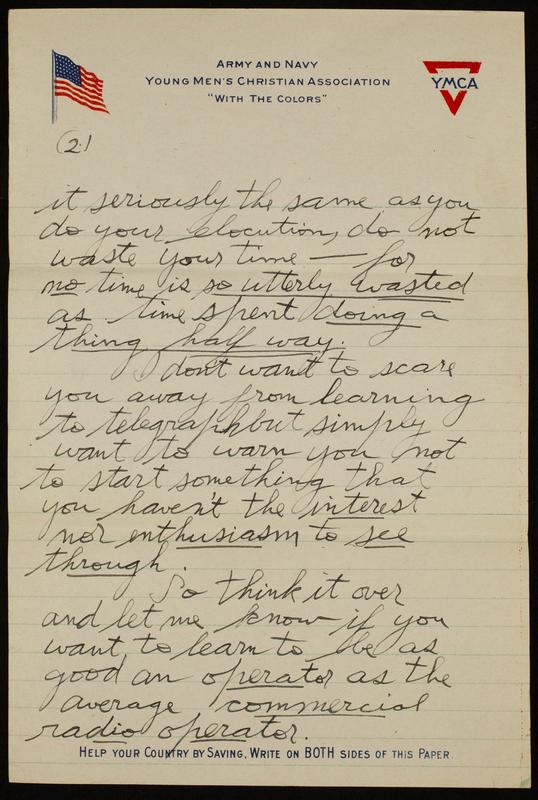 ARMY AND NAVY
YOUNG MEN'S CHRISTIAN ASSOCIATION
"WITH THE COLORS"
YMCA
(2.)
it seriously the same as you
do your elocution, do not
waste your time — for
no time is so utterly wasted
as time spent doing a
thing half way.
I don't want to scare
you away from learning
to telegraph but simply
want to warn you not
to start something that
you haven't the interest
nor enthusiasm to see
through.
So think it over
and let me know if you
want to learn to be as
good an operator as the
average commercial
radio operator.
HELP YOUR COUNTRY BY SAVING. WRITE ON BOTH SIDES OF THIS PAPER